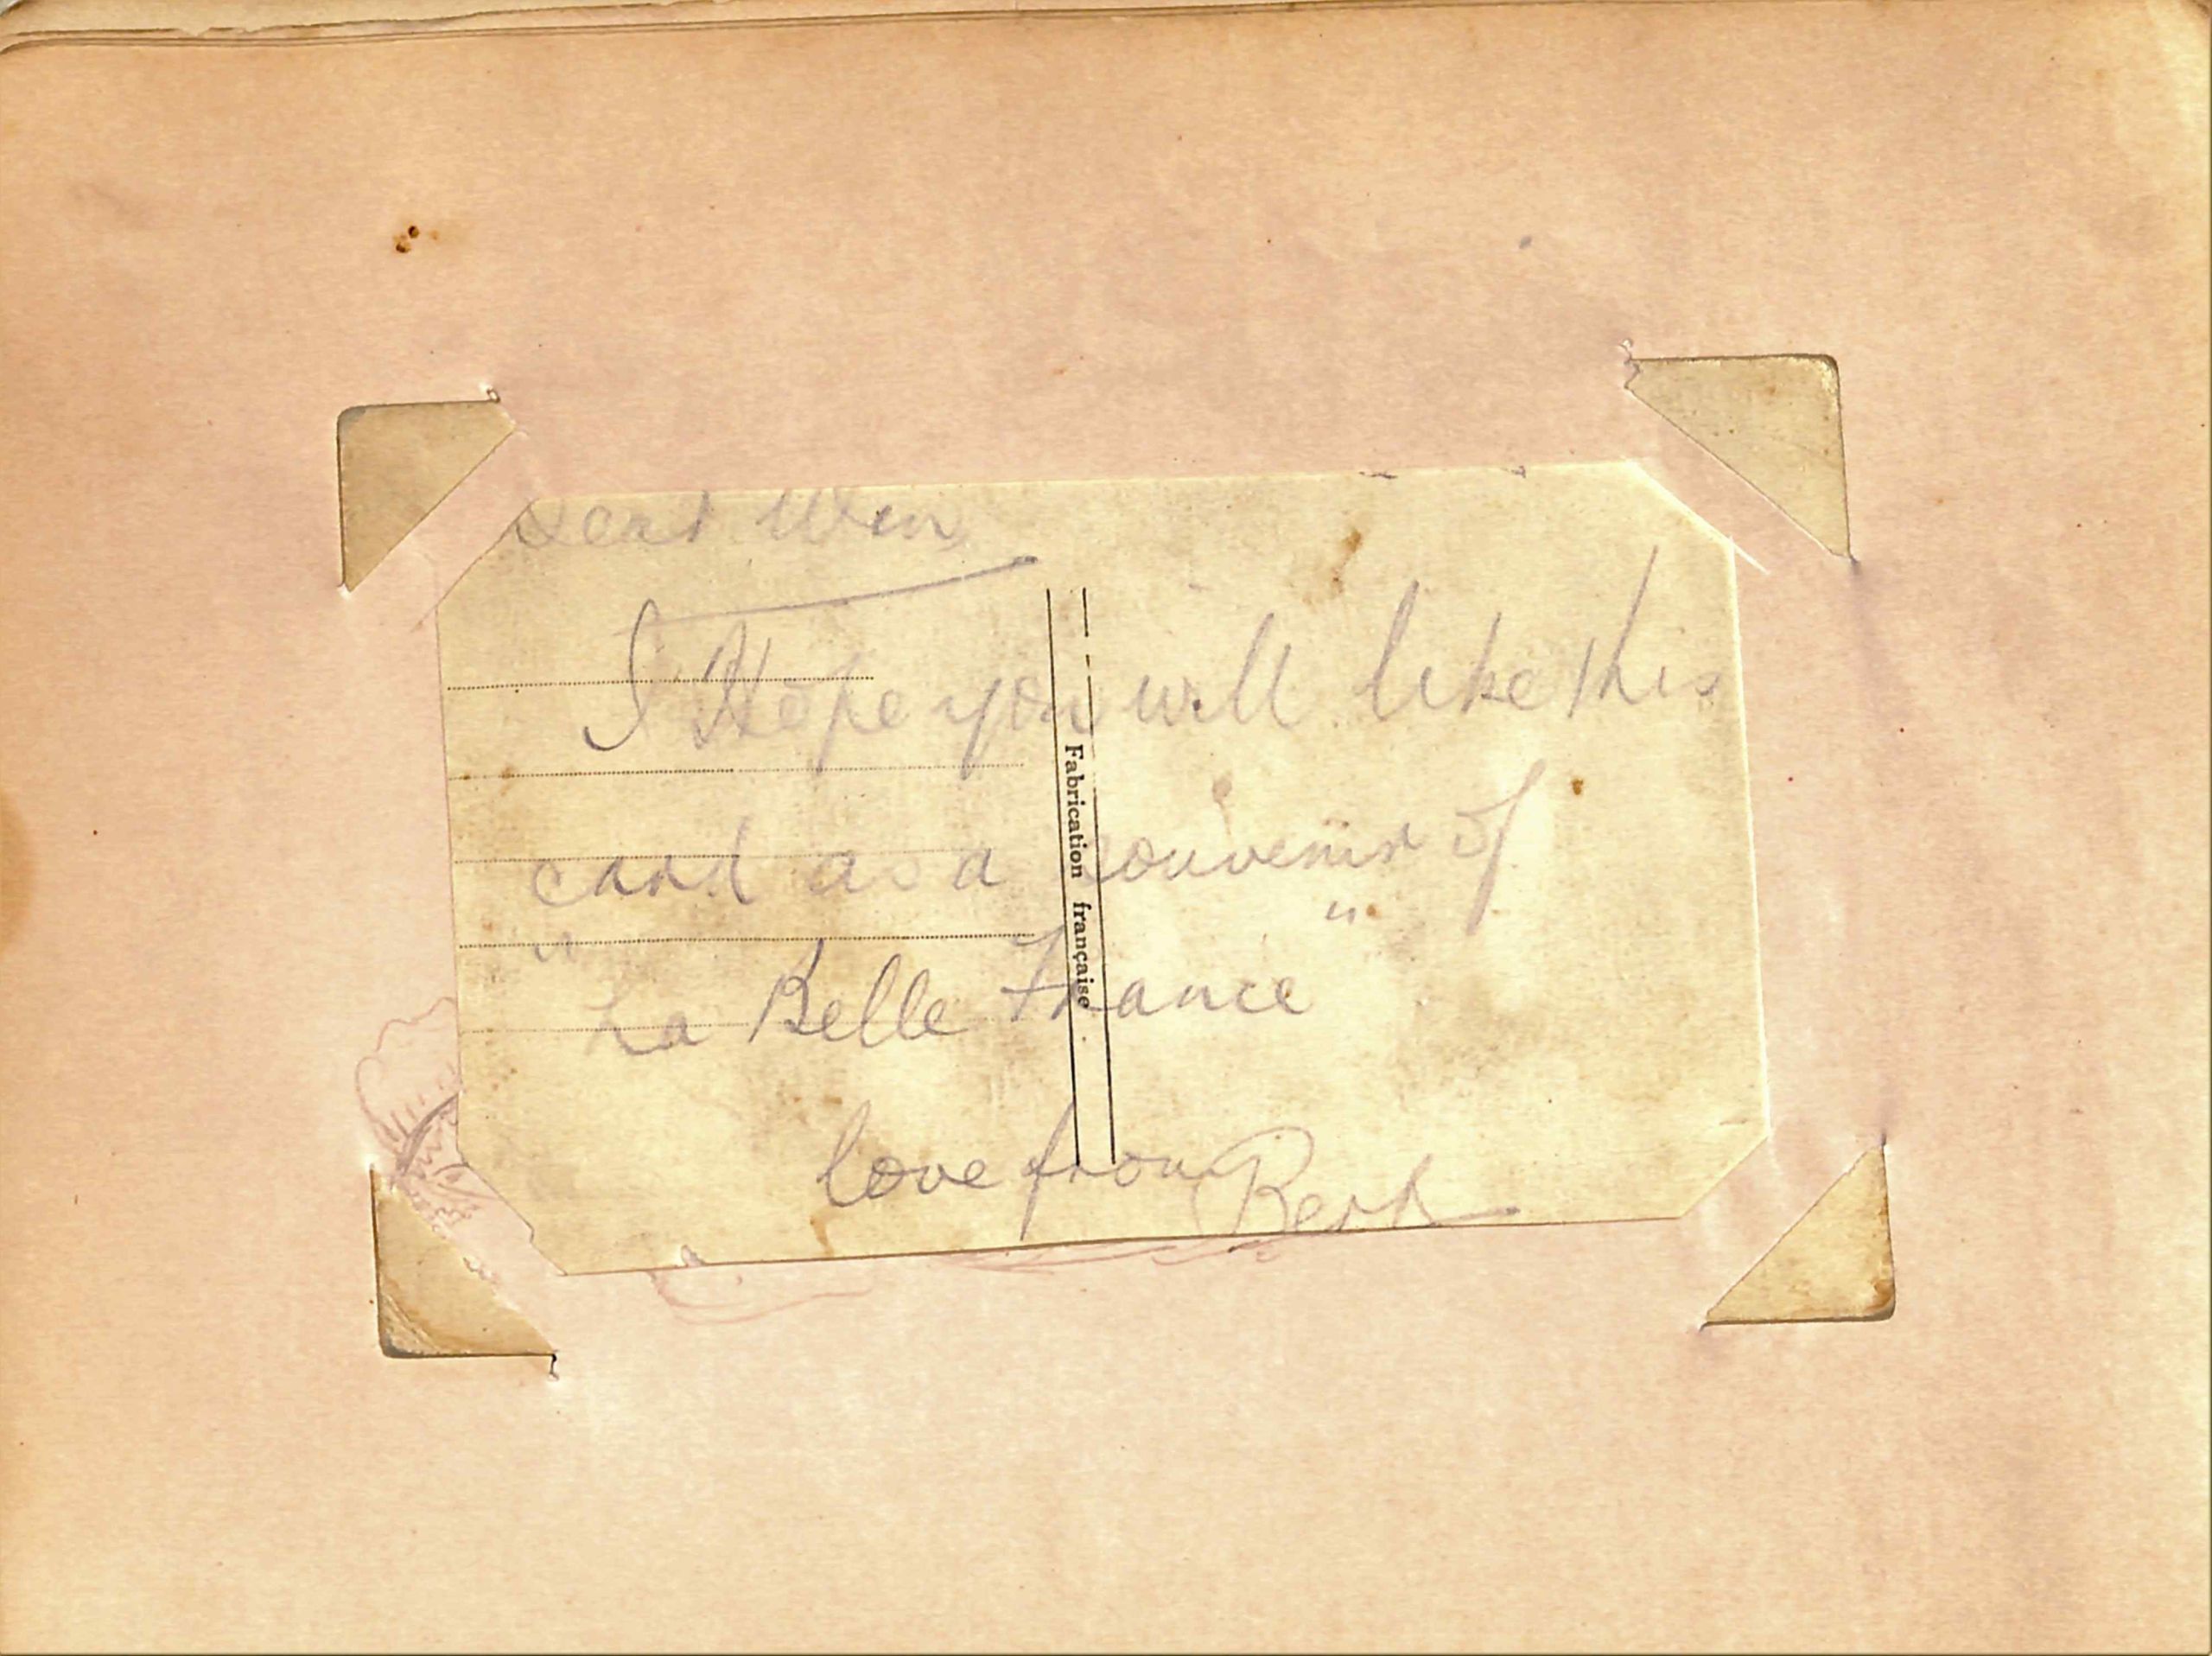 Dear Win
I Hope you will like this
card as a souvenir of
"La Belle France"
love from Bert
Fabrication française